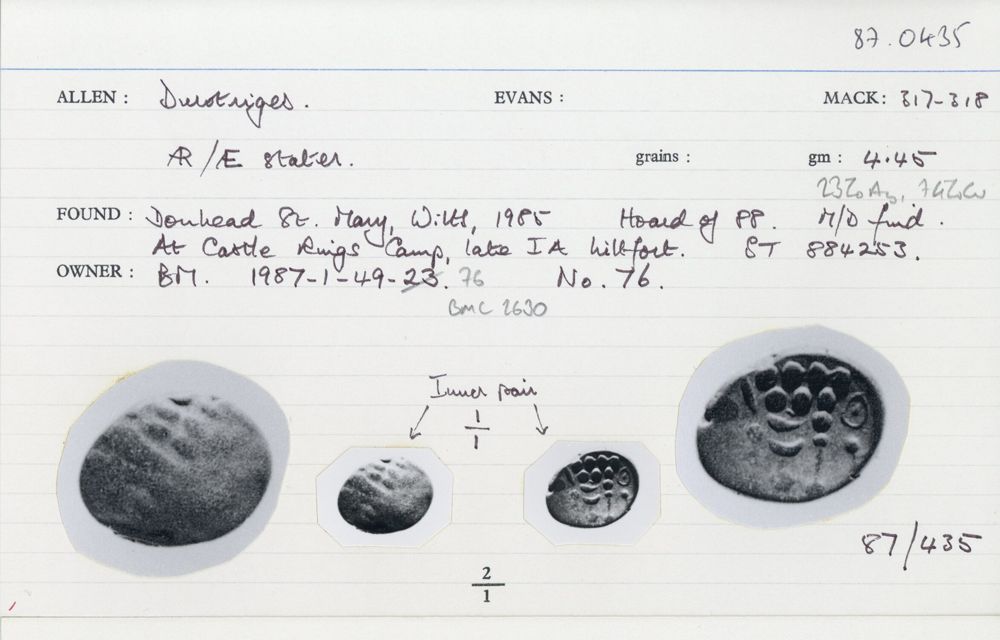 87.0435
ALLEN : Durotriges. EVANS : MACK: 317-318
AR/Æ stater. grains : gm : 4.45
23% Ag, 74% Cu
FOUND : Donhead St. Mary, Wilts, 1985 Hoard of 88. M/D find.
At Castle Rings Camp, late IA hillfort. ST 884253.
OWNER : BM. 1987-1-49-23. 76 No. 76.
BMC 2630
Inner pair
1
1
87/435
2
1